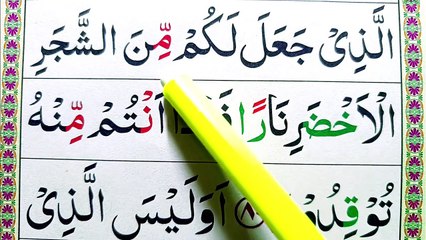 الَّذِىْ جَعَلَ لَكُمْ مِّنَ الشَّجَرِ
الْاَخْضَرِ نَارًا اَنْتُمْ مِّنْهُ
اَوَلَيْسَ الَّذِىْ